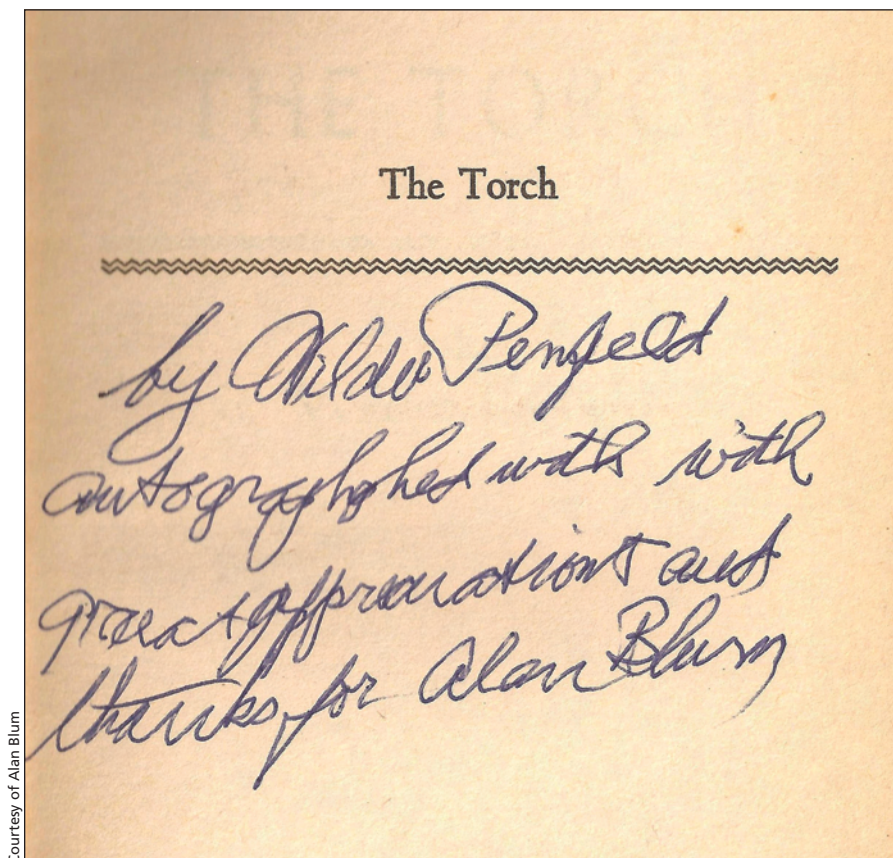 The Torch
by Wilder Penfield
autographed with with
great appreciation and
thanks for Alan Blum
Courtesy of Alan Blum